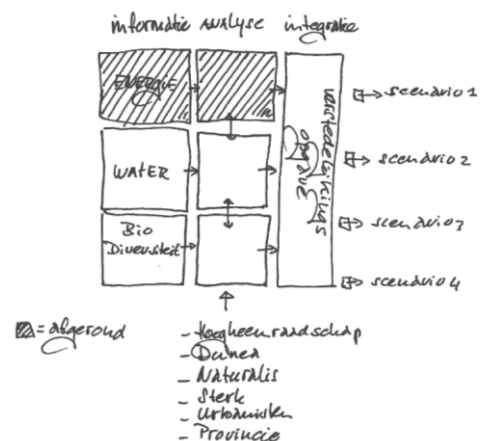 informatie ANALYSE integratie
ENERGIE
WATER
Bio
Diversiteit
verstedelijkings
opgave
scenario 1
scenario 2
scenario 3
scenario 4
= afgerond
- Hoogheemraadschap
- Dunea
- Naturalis
- Sterk
- Urbanisten
- Provincie